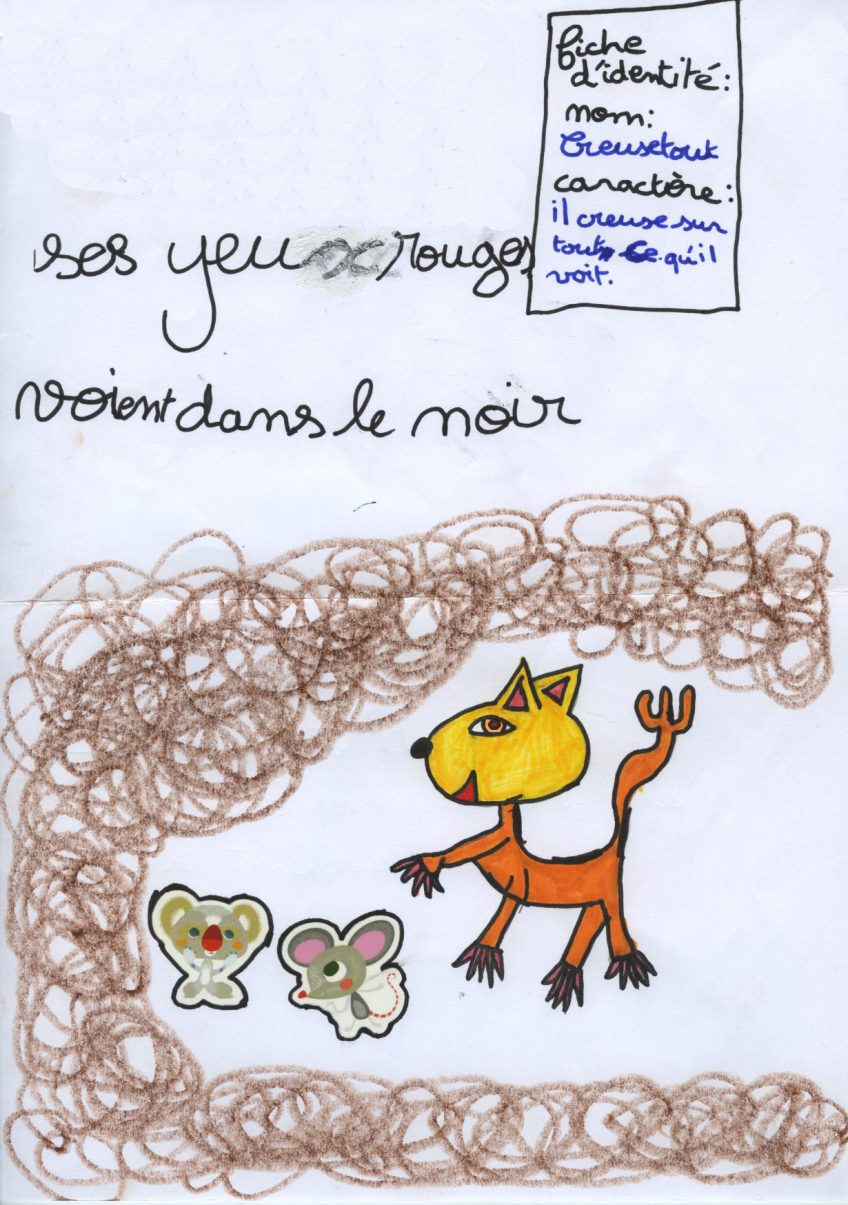 fiche
d'identité:
nom:
Creusetout
caractère:
il creuse sur
tout ce qu'il
voit.
ses yeux rouges
voient dans le noir